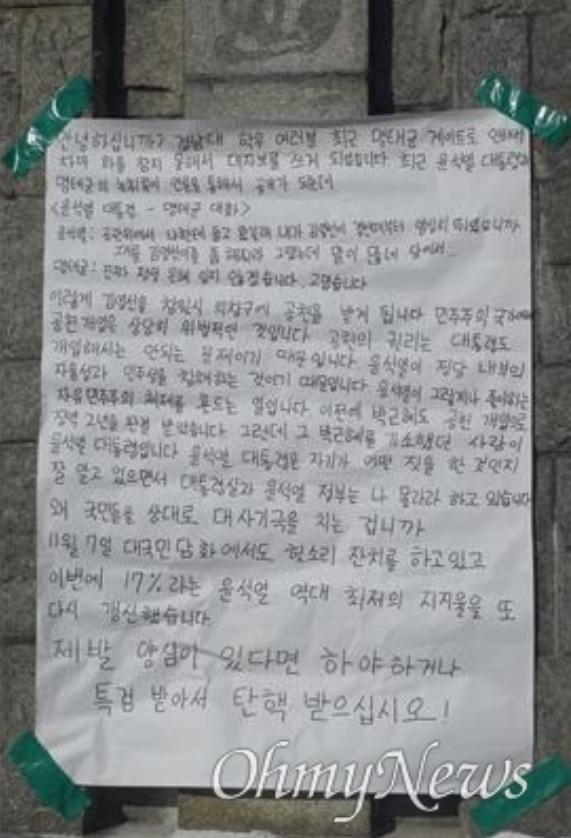 안녕하십니까? 경남대 학우 여러분 최근 명태균 게이트로 인해서
차마 화를 참지 못해서 대자보를 쓰게 되었습니다 최근 윤석열 대통령과
명태균의 녹취록이 언론을 통해서 공개가 되는데
<윤석열 대통령 - 명태균 대화>
윤석열: 공관위에서 나한테 들고 왔길래 내가 김영선이 경선때부터 열심히 뛰었으니까
그거를 김영선이를 좀 해줘라 그랬는데 말이 많네 당에서...
명태균: 진짜 평생 은혜 잊지 않겠습니다. 고맙습니다
이렇게 김영선을 창원시 의창구에 공천을 받게 됩니다 민주주의 국가에서
공천개입은 상당히 위법적인 것입니다 공천의 권리는 대통령도
개입해서는 안되는 문제이기 때문입니다 윤석열이 정당 내부의
자율성과 민주성을 침해하는 것이기 때문입니다 윤석열이 그렇게나 좋아하는
자유민주주의 최저를 흔드는 일입니다 이전에 박근혜도 공천 개입으로
징역 2년을 판결 받았습니다 그런데 그 박근혜를 기소했던 사람이
윤석열 대통령입니다 윤석열 대통령은 자기가 어떤 짓을 한 것인지
잘 알고 있으면서 대통령실과 윤석열 정부는 나 몰라라 하고 있습니다
왜 국민들을 상대로 대사기극을 치는 겁니까
11월 7일 대국민 담화에서도 헛소리 잔치를 하고있고
이번에 17%라는 윤석열 역대 최저의 지지율을 또
다시 갱신했습니다
제발 양심이 있다면 하야하거나
특검 받아서 탄핵 받으십시오!
OhmyNews